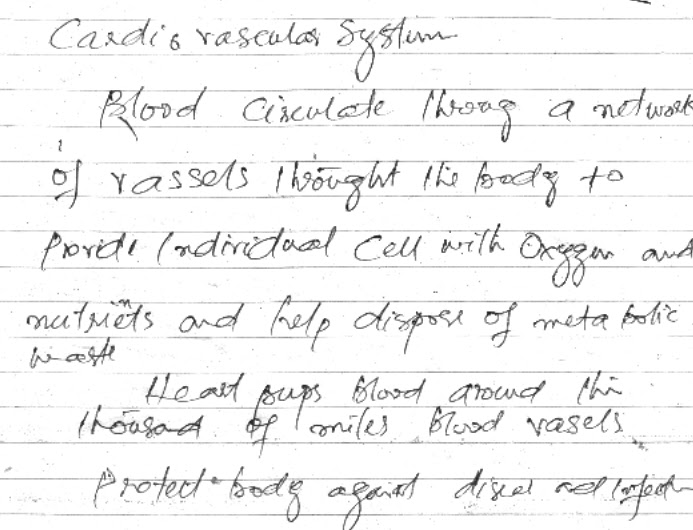 Cardio vascular System
Blood Circulate throug a network
of vassels throught the body to
Provide Individual Cell with Oxygen and
nutriets and help dispose of metabolic
waste
Heart pups Blood around the
thousad of miles Blood vasels
Protect body against